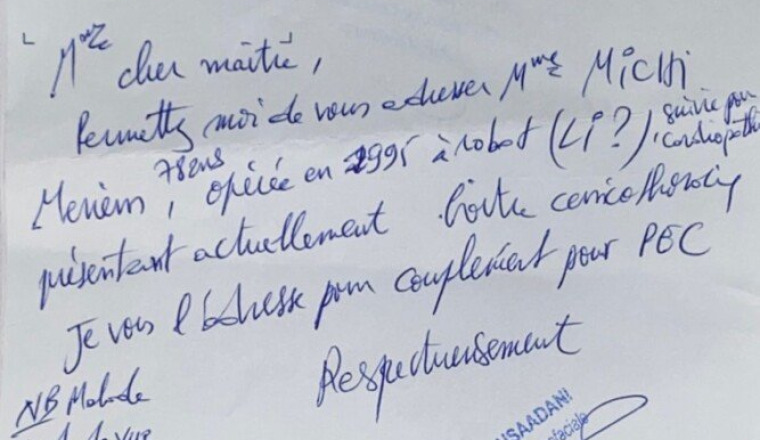 Mme cher maître,
Permettez moi de vous adresser Mme MiCHi
Meriem, 78 ans, opérée en 1995 à robat (Li?), suivie pour cardiopathie
présentant actuellement Goitre cervicothoracique
Je vous l'adresse pour complément pour PEC
Respectueusement
NB Malade
SAADANI